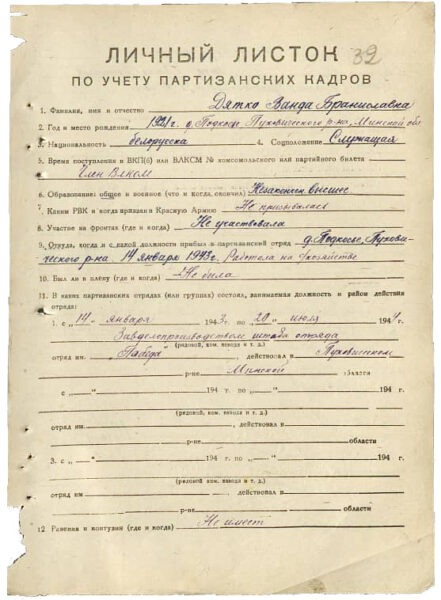 ЛИЧНЫЙ ЛИСТОК 32
ПО УЧЕТУ ПАРТИЗАНСКИХ КАДРОВ
1. Фамилия, имя и отчество Дятко Ванда Браниславна
2. Год и место рождения 1921 г. д. Подкосье Пуховического р-на, Минской обл
3. Национальность белорусска 4. Соцположение Служащая
5. Время поступления в ВКП(б) или ВЛКСМ № комсомольского или партийного билета
Член ВЛКСМ
6. Образование: общее и военное (что и когда, окончил) Незакончен. высшее
7. Каким РВК и когда призван в Красную Армию Не призывалась
8. Участие на фронтах (где и когда) Не участвовала
9. Откуда, когда и с какой должности прибыл в партизанский отряд д. Подкосье, Пухови-
ческого р-на 14 января 1943 г. Работала на с/хозяйстве
10. Был ли в плену (где и когда) Не была
11. В каких партизанских отрядах (или группах) состоял, занимаемая должность и район действия
отряда:
1. с „14" января 1943 г. по „20" июля 1944 г.
Завделопроизводством штаба отряда
(рядовой, ком. взвода и т. д.)
отряд им. "Победа" действовал в Пуховичском
р-не Минской области
2. с „ " 194 г. по „ " 194 г.
(рядовой, ком. взвода и т. д.)
отряд им. , действовал в
р-не области
3. с „ " 194 г. по „ " 194 г.
(рядовой, ком. взвода и т. д.)
отряд им , действовал в
р-не области
12. Ранения и контузии (где и когда) Не имеет